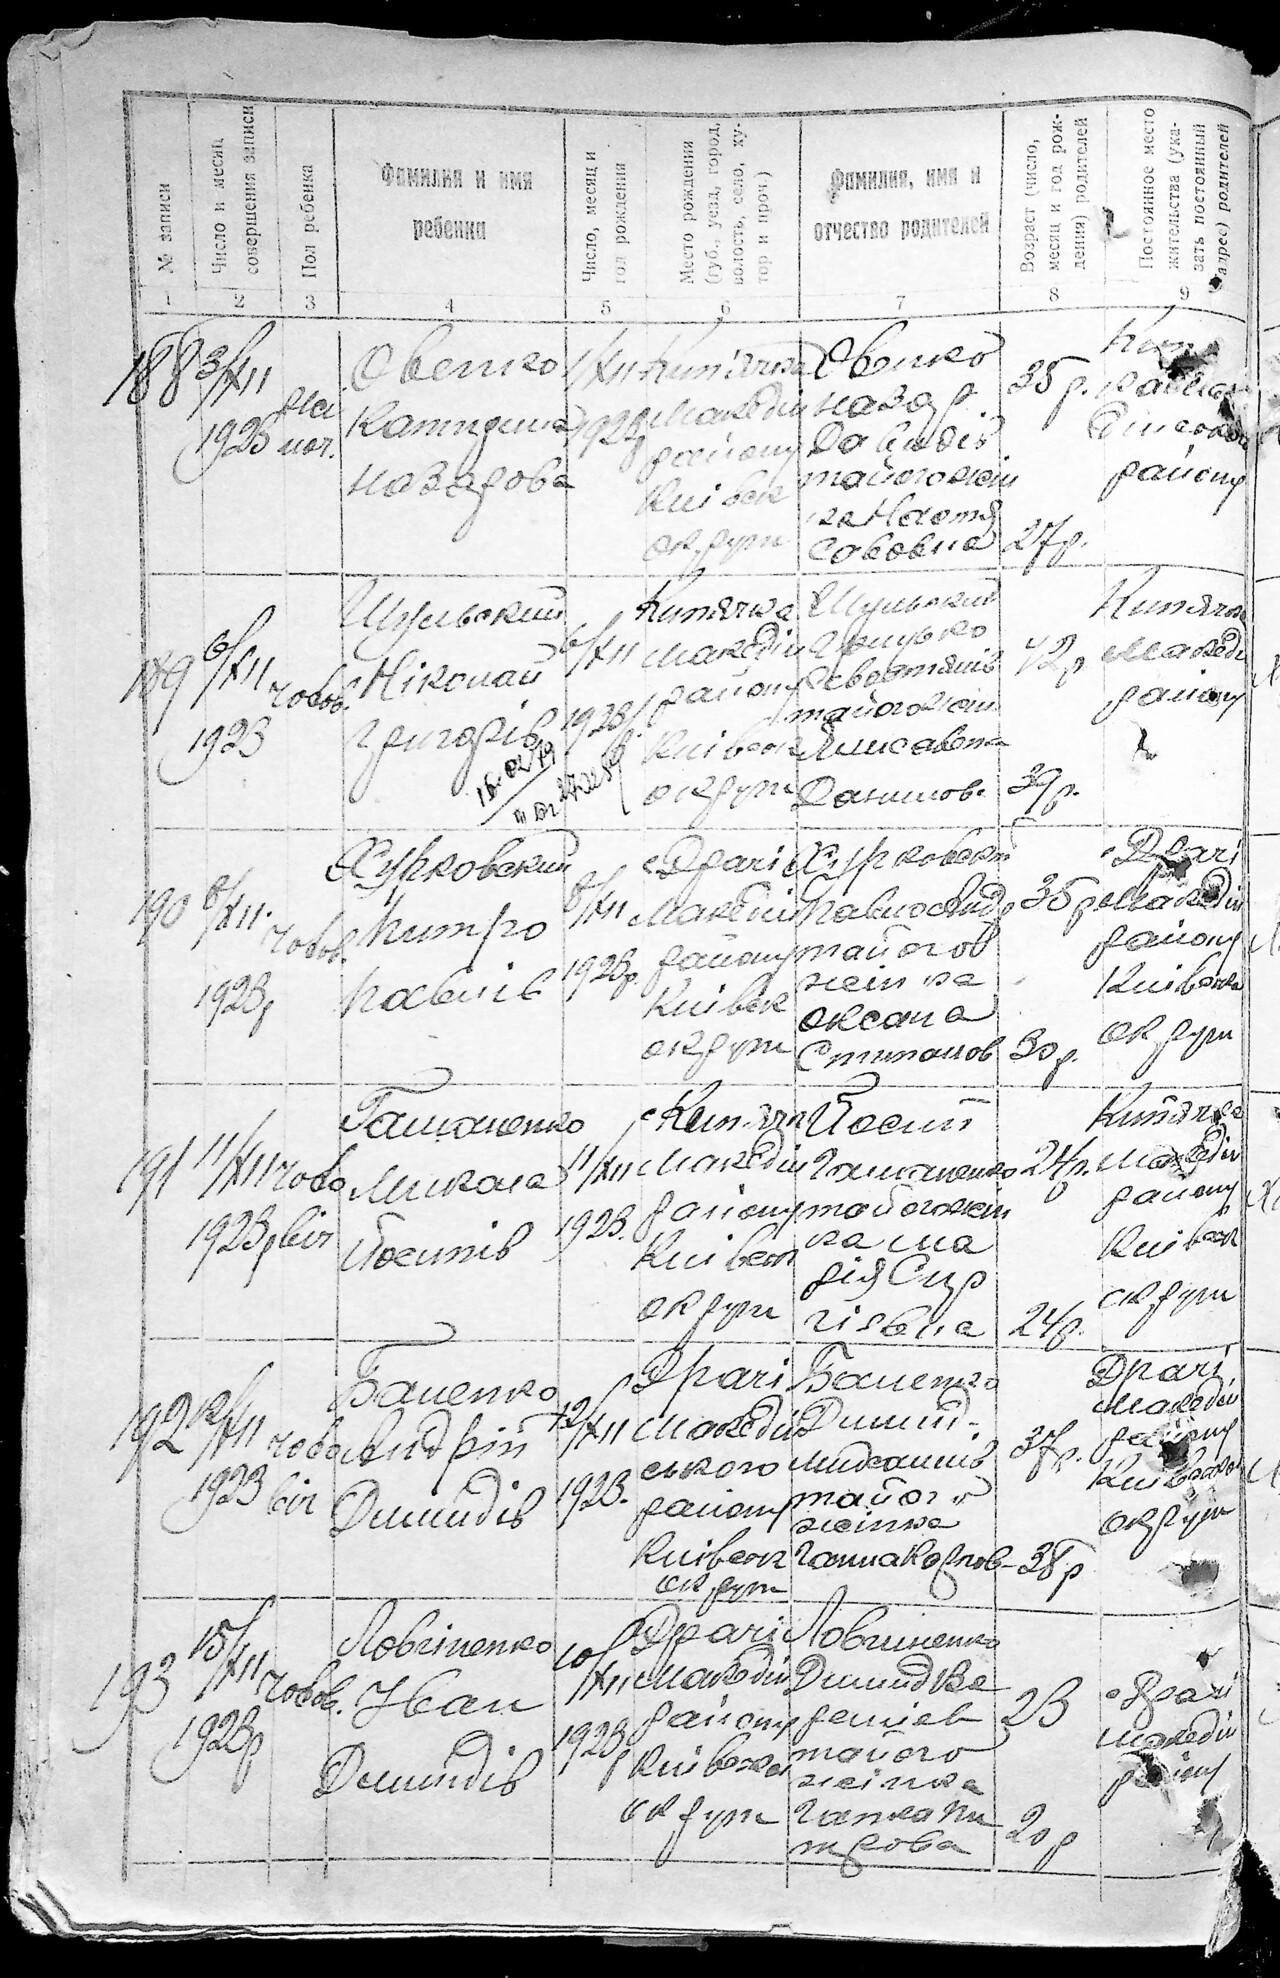 № записи
Число и месяц
совершения записи
Пол ребенка
Фамилия и имя
ребенка
Число, месяц и
год рождения
Место рождения
(губ., уезд, город,
волость, село, ху-
тор и проч.)
Фамилия, имя и
отчество родителей
Возраст (число,
месяц и год рож-
дения) родителей
Постоянное место
жительства (ука-
зать постоянный
адрес) родителей
1
2
3
4
5
6
7
8
9
188
3/XII
1923
жи
ноч.
Овенко
Катерина
Назарова
1/XII
1923
Кип'ячка
Македin
району
Київск
округи
Овенко
Назар
Давидів
тайогожін
ка Настя
Савовна
35 р.
27 р.
району
189
6/XII
1923
чолов.
Шульский
Ніколай
Григорів
6/XII
1923
Кипячка
Македін
району
Київськ
округи
Шульский
Грицько
Севостянів
тайогожін
Лисавета
Данилов.
42 р
39 р.
Кипячка
Македін
району
190
8/XII.
1923р
чолов.
Хурковский
Питро
Павлів
8/XII
1923р.
с Драчі
Македін
району
Київск
округи
Хурковский
Павло
тайого
жінка
Оксана
Стипанов
35 р
30 р.
с Драчі
Македін
району
Київска
округи
191
11/XII
1923р
чоло
віч
Гашаненко
Микола
Йосипів
11/XII
1923.
с Кип'яч
Македін
району
Київск
округи
Йосип
Гашаненко
тайогожін
ка Ма
рія Сер
гієвна
24 р.
Кип'ячка
Македін
району
Київск
округи
192
12/XII
1923
чоло
віч
Баленко
Андрій
Димидів
12/XII
1923.
Драчі
Македін
ського
району
Київск
округи
Баленко
Димид
тайог
жінка
Ганна Карпов
37 р.
38 р
Драчі
Македін
району
Київскої
округи
193
15/XII
1923р
чолов.
Ловгиненко
Иван
Димидів
10/XII
1923р
Драчі
Македін
району
Київска
округи
Ловгиненко
Димид
тайого
жінка
Гапка Пи
трова
23
20 р
с Драчі
Македін
району